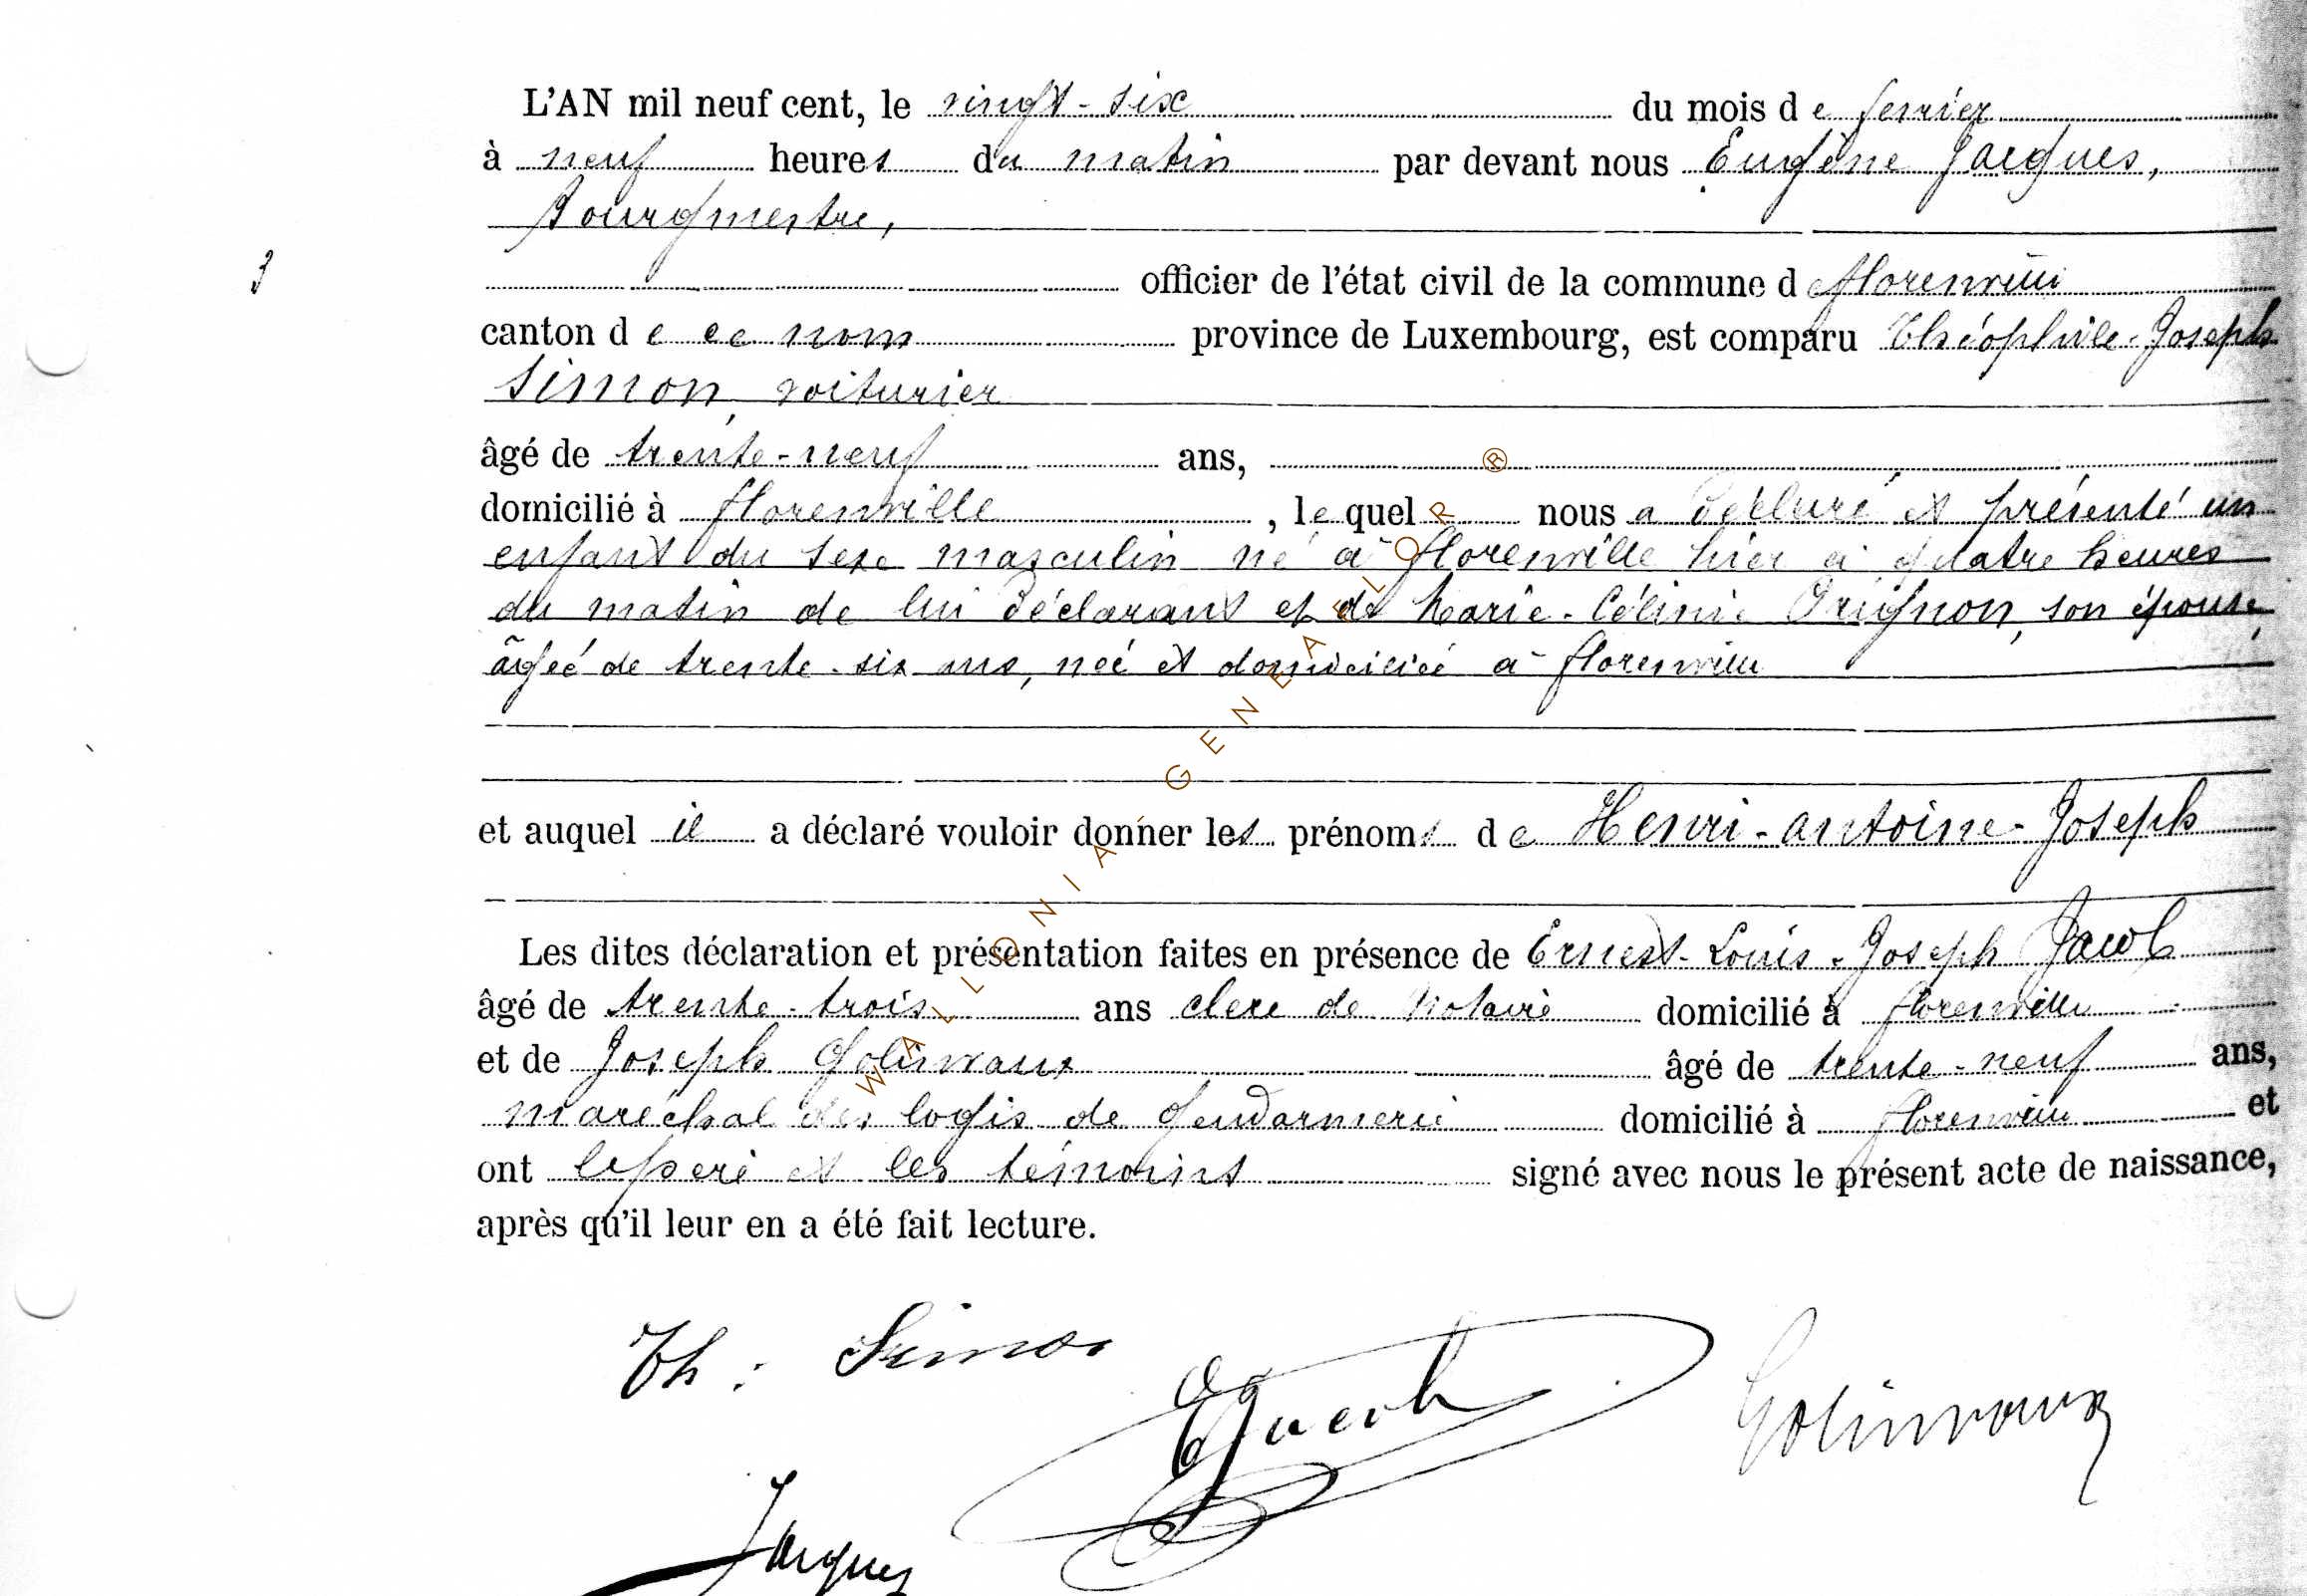 L'AN mil neuf cent, le vingt-six du mois de fevrier
à neuf heures du matin par devant nous Eugène Jacques,
Bourgmestre,
3 officier de l'état civil de la commune de florenville
canton de ce nom province de Luxembourg, est comparu Théophile-Joseph
Simon, voiturier
âgé de trente-neuf ans,
domicilié à florenville, lequel nous a déclaré et présenté un
enfant du sexe masculin né à florenville hier à quatre heures
du matin de lui déclarant et de Marie-Célinie Orignon, son épouse,
âgée de trente-six ans, née et domiciliée à florenville
et auquel il a déclaré vouloir donner les prénoms de Henri-antoine-Joseph
Les dites déclaration et présentation faites en présence de Ernest-Louis-Joseph Jacob
âgé de trente-trois ans clerc de Notaire domicilié à florenville
et de Joseph Golinvaux âgé de trente-neuf ans,
maréchal des logis de gendarmerie domicilié à florenville et
ont le père et les témoins signé avec nous le présent acte de naissance,
après qu'il leur en a été fait lecture.
Th : Simon
EJacob
Golinvaux
Jacques
WALLONIA GENEALOR ®